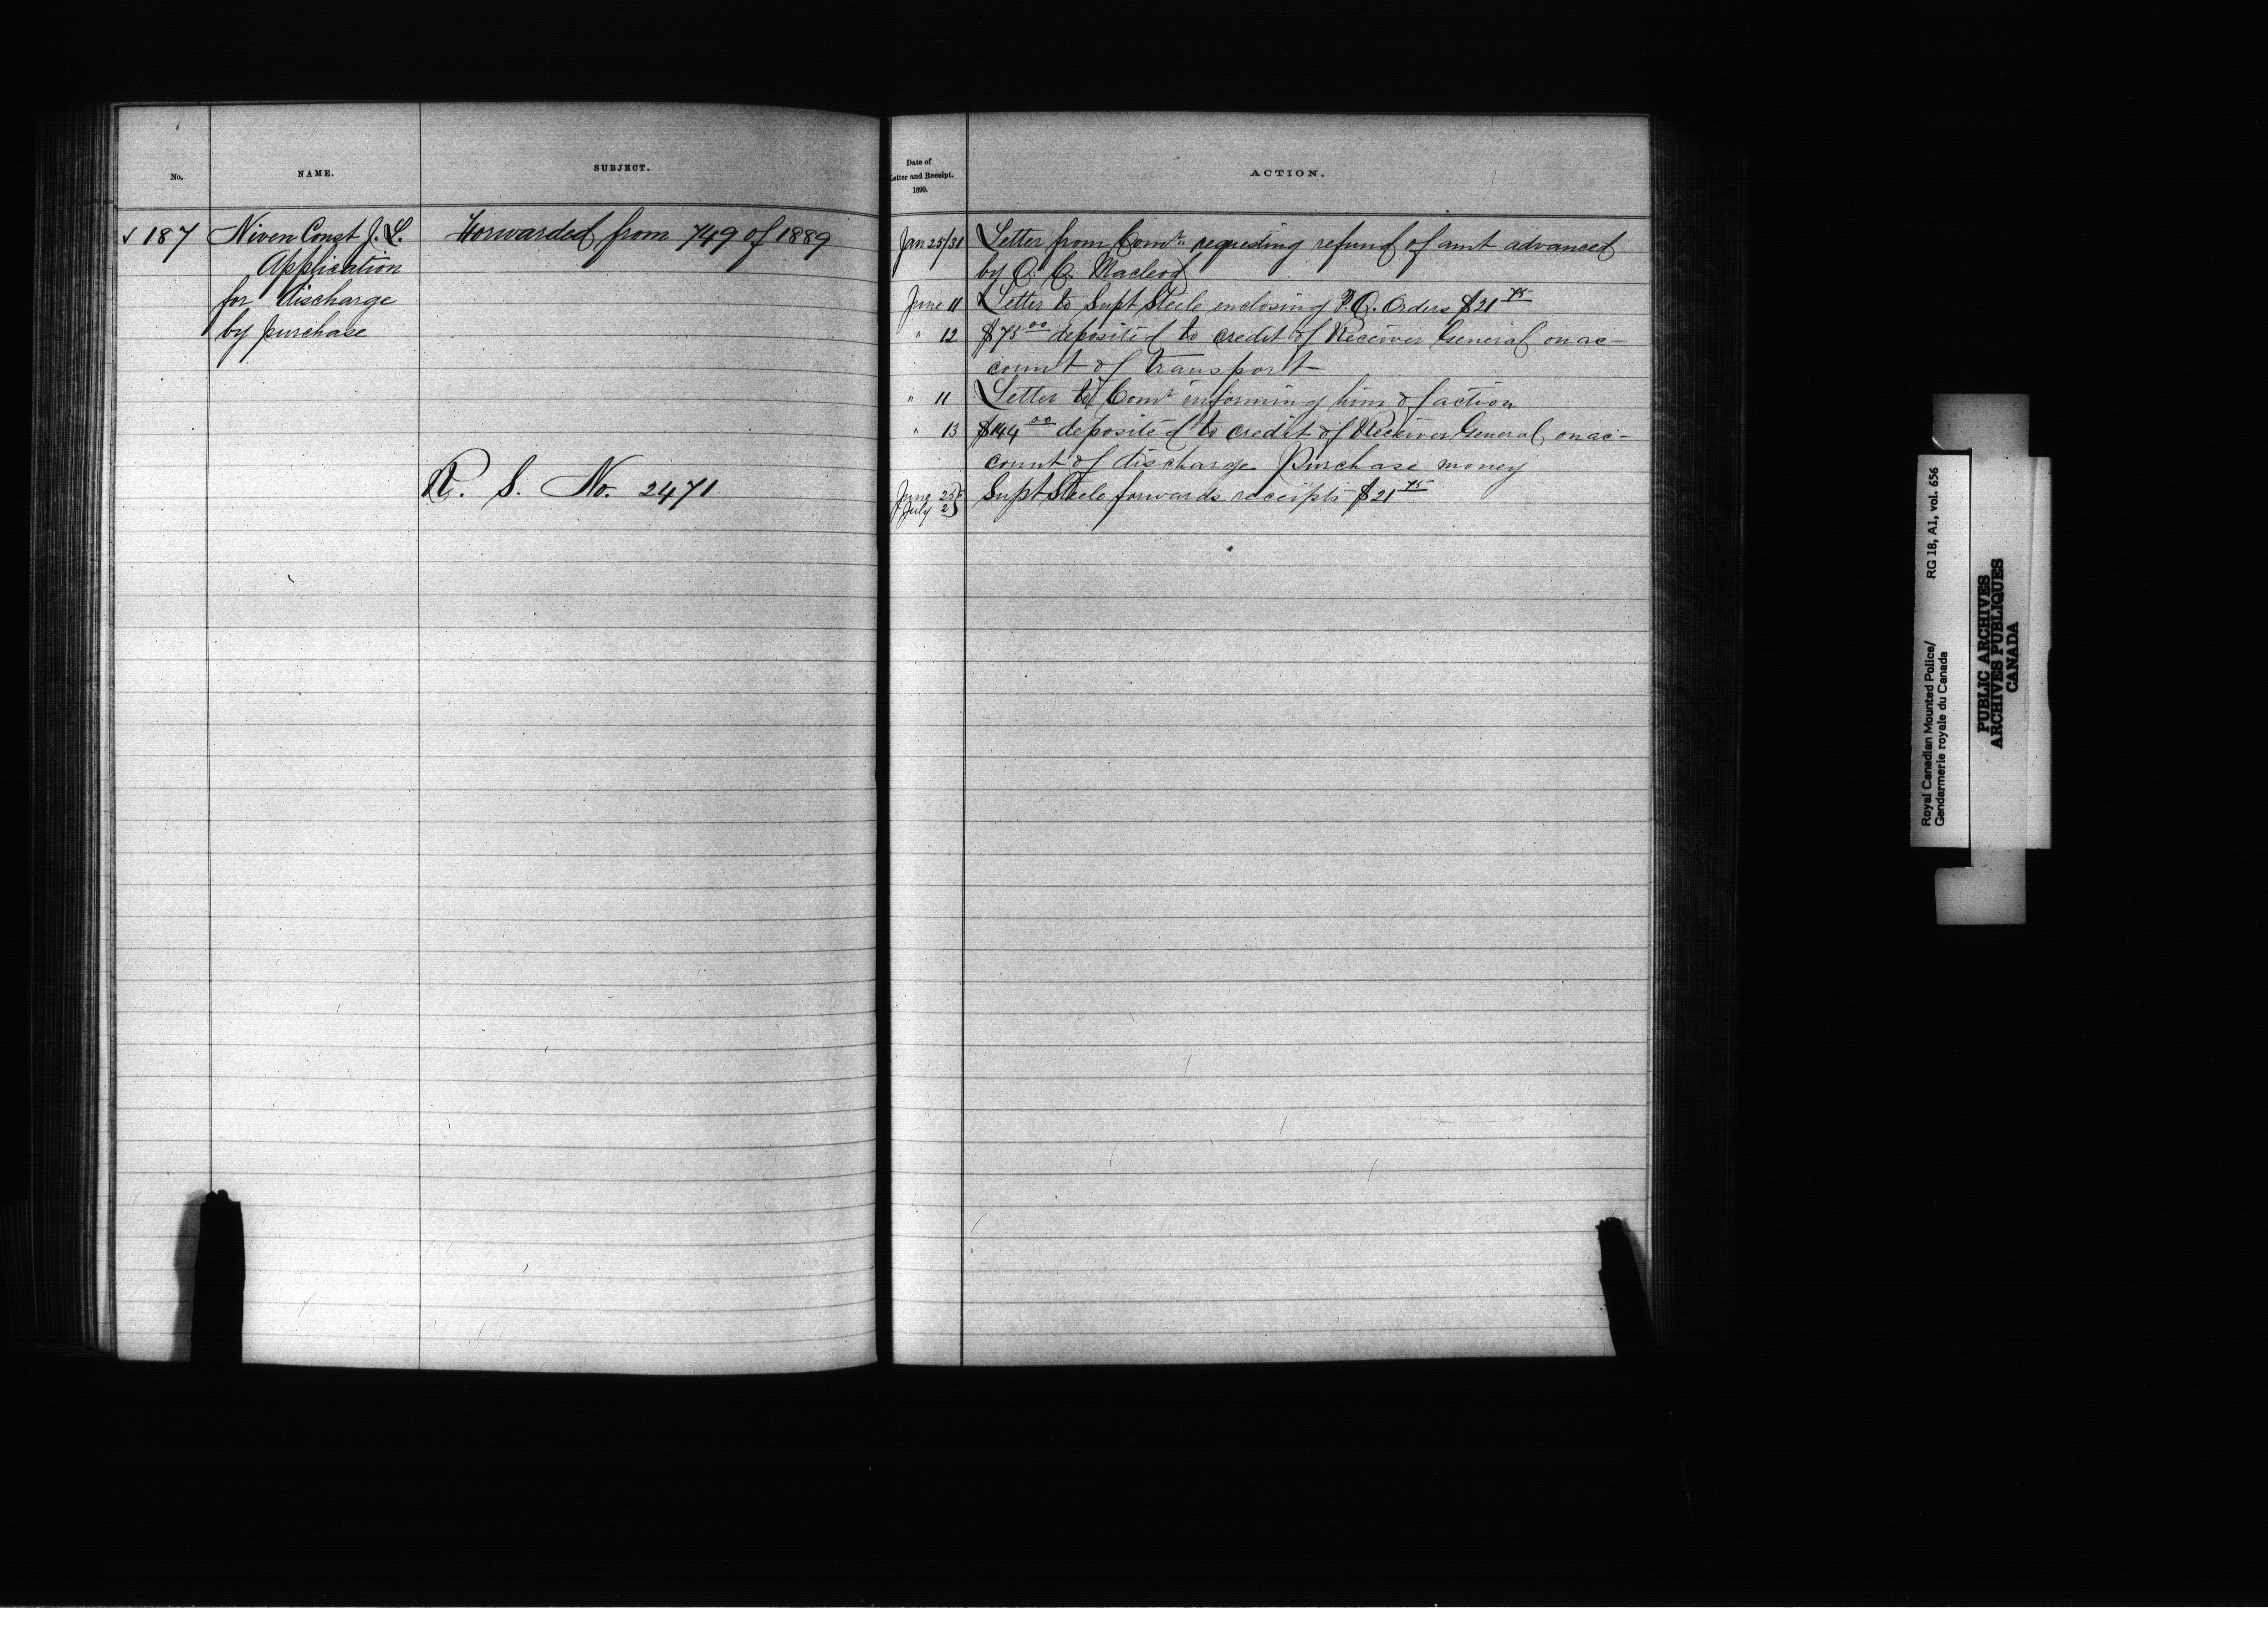 No.
NAME.
SUBJECT.
✓ 187
Niven Const J. L.
Application
for discharge
by purchase
Forwarded from 749 of 1889
R. S. No. 2471
Date of
Letter and Receipt.
1890.
ACTION.
Jan 25/31 Letter from Comr. requesting refund of amt advanced
by O. C. Macleod
June 11 Letter to Supt Steele enclosing P.O. Orders $21 75
" 12 $75 00 deposited to credit of Receiver General on ac-
count of transport
" 11 Letter to Comr informing him of action
" 13 $144 00 deposited to credit of Receiver General on ac-
count of discharge Purchase money
June 25 Supt Steele forwards receipts $21 75
July 2
Royal Canadian Mounted Police/ RG 18, A1, vol. 656
Gendarmerie royale du Canada
PUBLIC ARCHIVES
ARCHIVES PUBLIQUES
CANADA